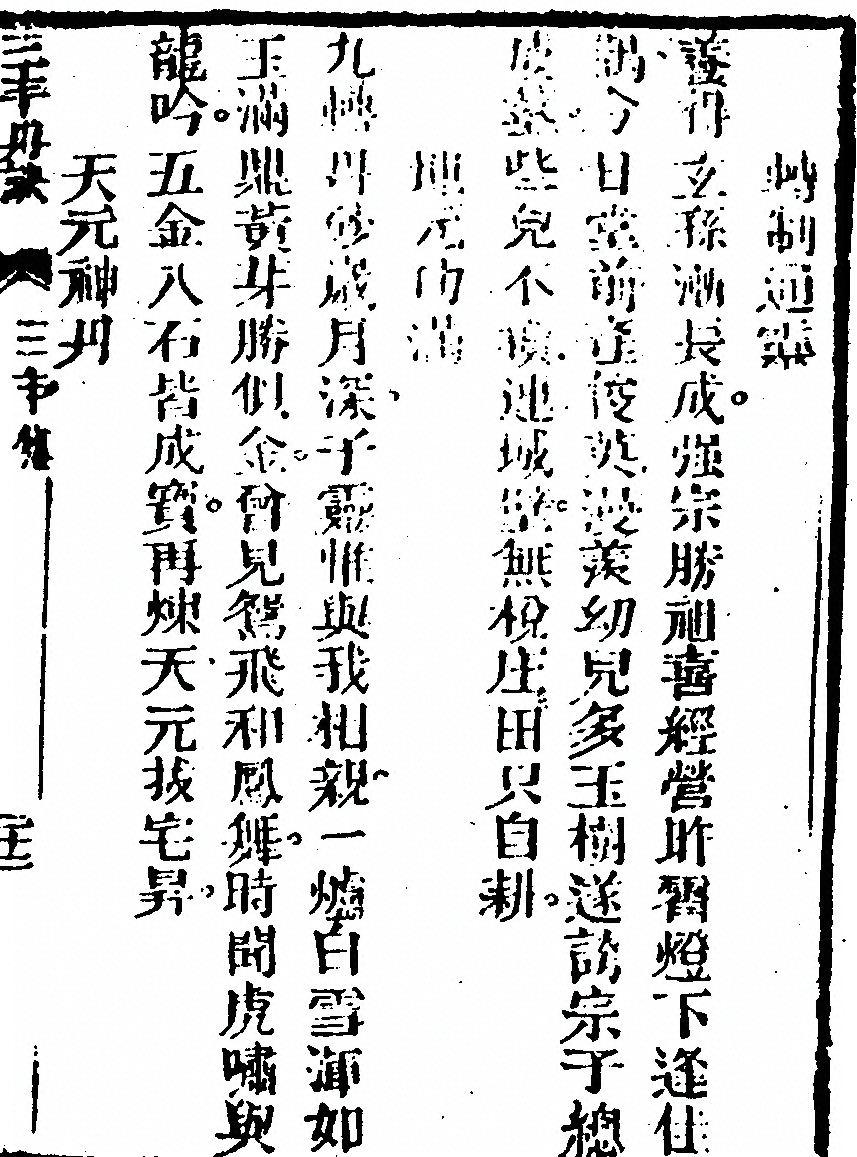 轉制通靈
養得玄孫漸長成強宗勝祖喜經營昨宵燈下逢仕
偶今日堂前產俊英漫羨幼兒多玉樹遂誇宗子總
成些兒不廣連城壁無稅庄田只自耕
地元
九轉丹砂歲月深子靈惟與我相親一爐白雪渾如
玉滿鼎黃芽勝似金曾見鴛飛和鳳舞時聞虎嘯與
龍吟五金八石皆成寶再煉天元拔宅昇
天元神丹
三丰丹訣
三丰集